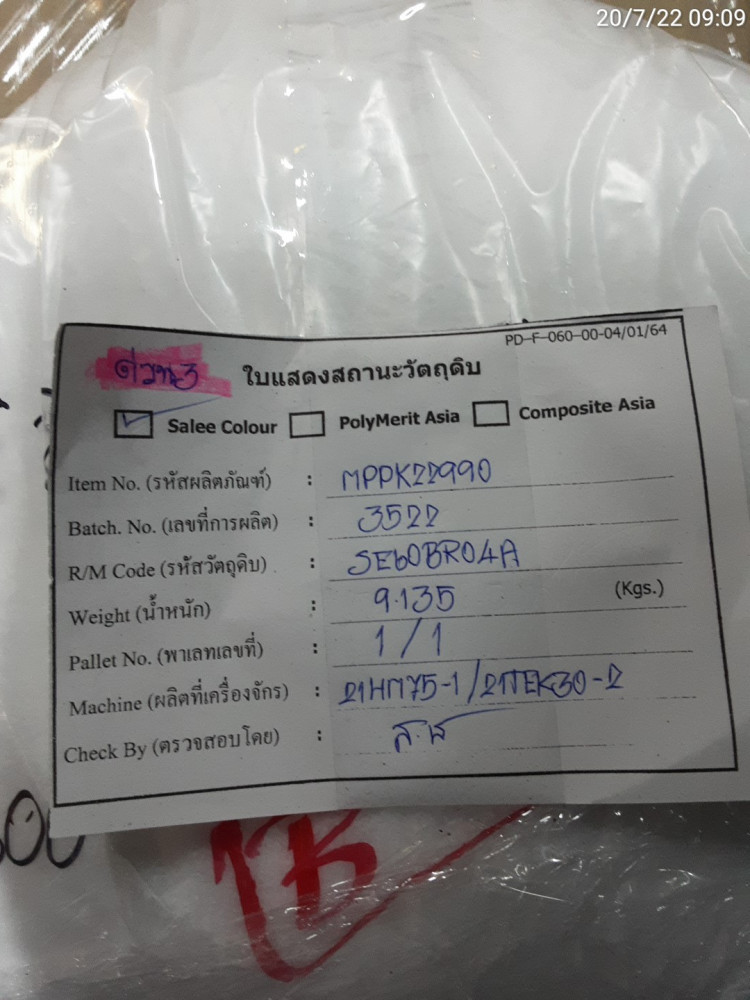 20/7/22 09:09
PD-F-060-00-04/01/64
ด่วน3 ใบแสดงสถานะวัตถุดิบ
Salee Colour PolyMerit Asia Composite Asia
Item No. (รหัสผลิตภัณฑ์) : MPPK22990
Batch. No. (เลขที่การผลิต) : 3522
R/M Code (รหัสวัตถุดิบ) : SE60BR04A
Weight (น้ำหนัก) : 9.135 (Kgs.)
Pallet No. (พาเลทเลขที่) : 1/1
Machine (ผลิตที่เครื่องจักร) : 21HM75-1/21TEK30-2
Check By (ตรวจสอบโดย) :